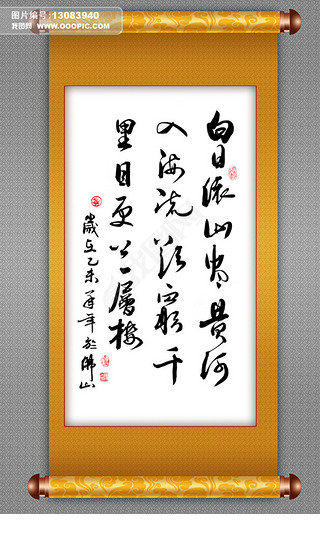 图片编号:13083940
我图网 WWW.OOOPIC.COM
白日依山尽黄河
入海流欲窮千
里目更上一層樓
歲在乙未羊年於佛山